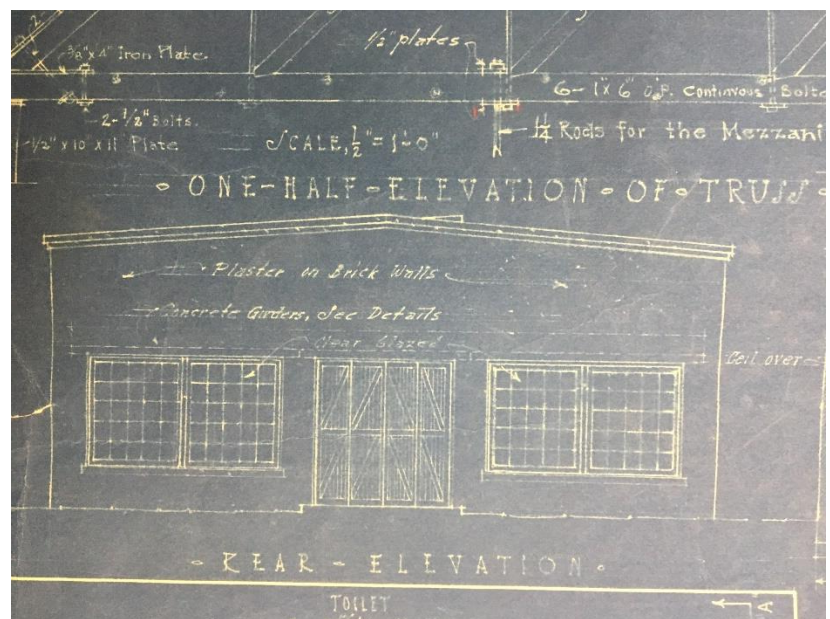 3/8"x4" Iron Plate.
1/2" plates
6- 1x6" O.P. Continuous "Bolte
2-1/2" Bolts.
1/2" x 10" x 11" Plate
SCALE, 1/2"=1'-0"
1 1/4 Rods for the Mezzani
ONE-HALF-ELEVATION OF TRUSS
Plaster on Brick Walls
Concrete Girders, See Details
Clear Glazed
Ceil over
REAR - ELEVATION
TOILET
A